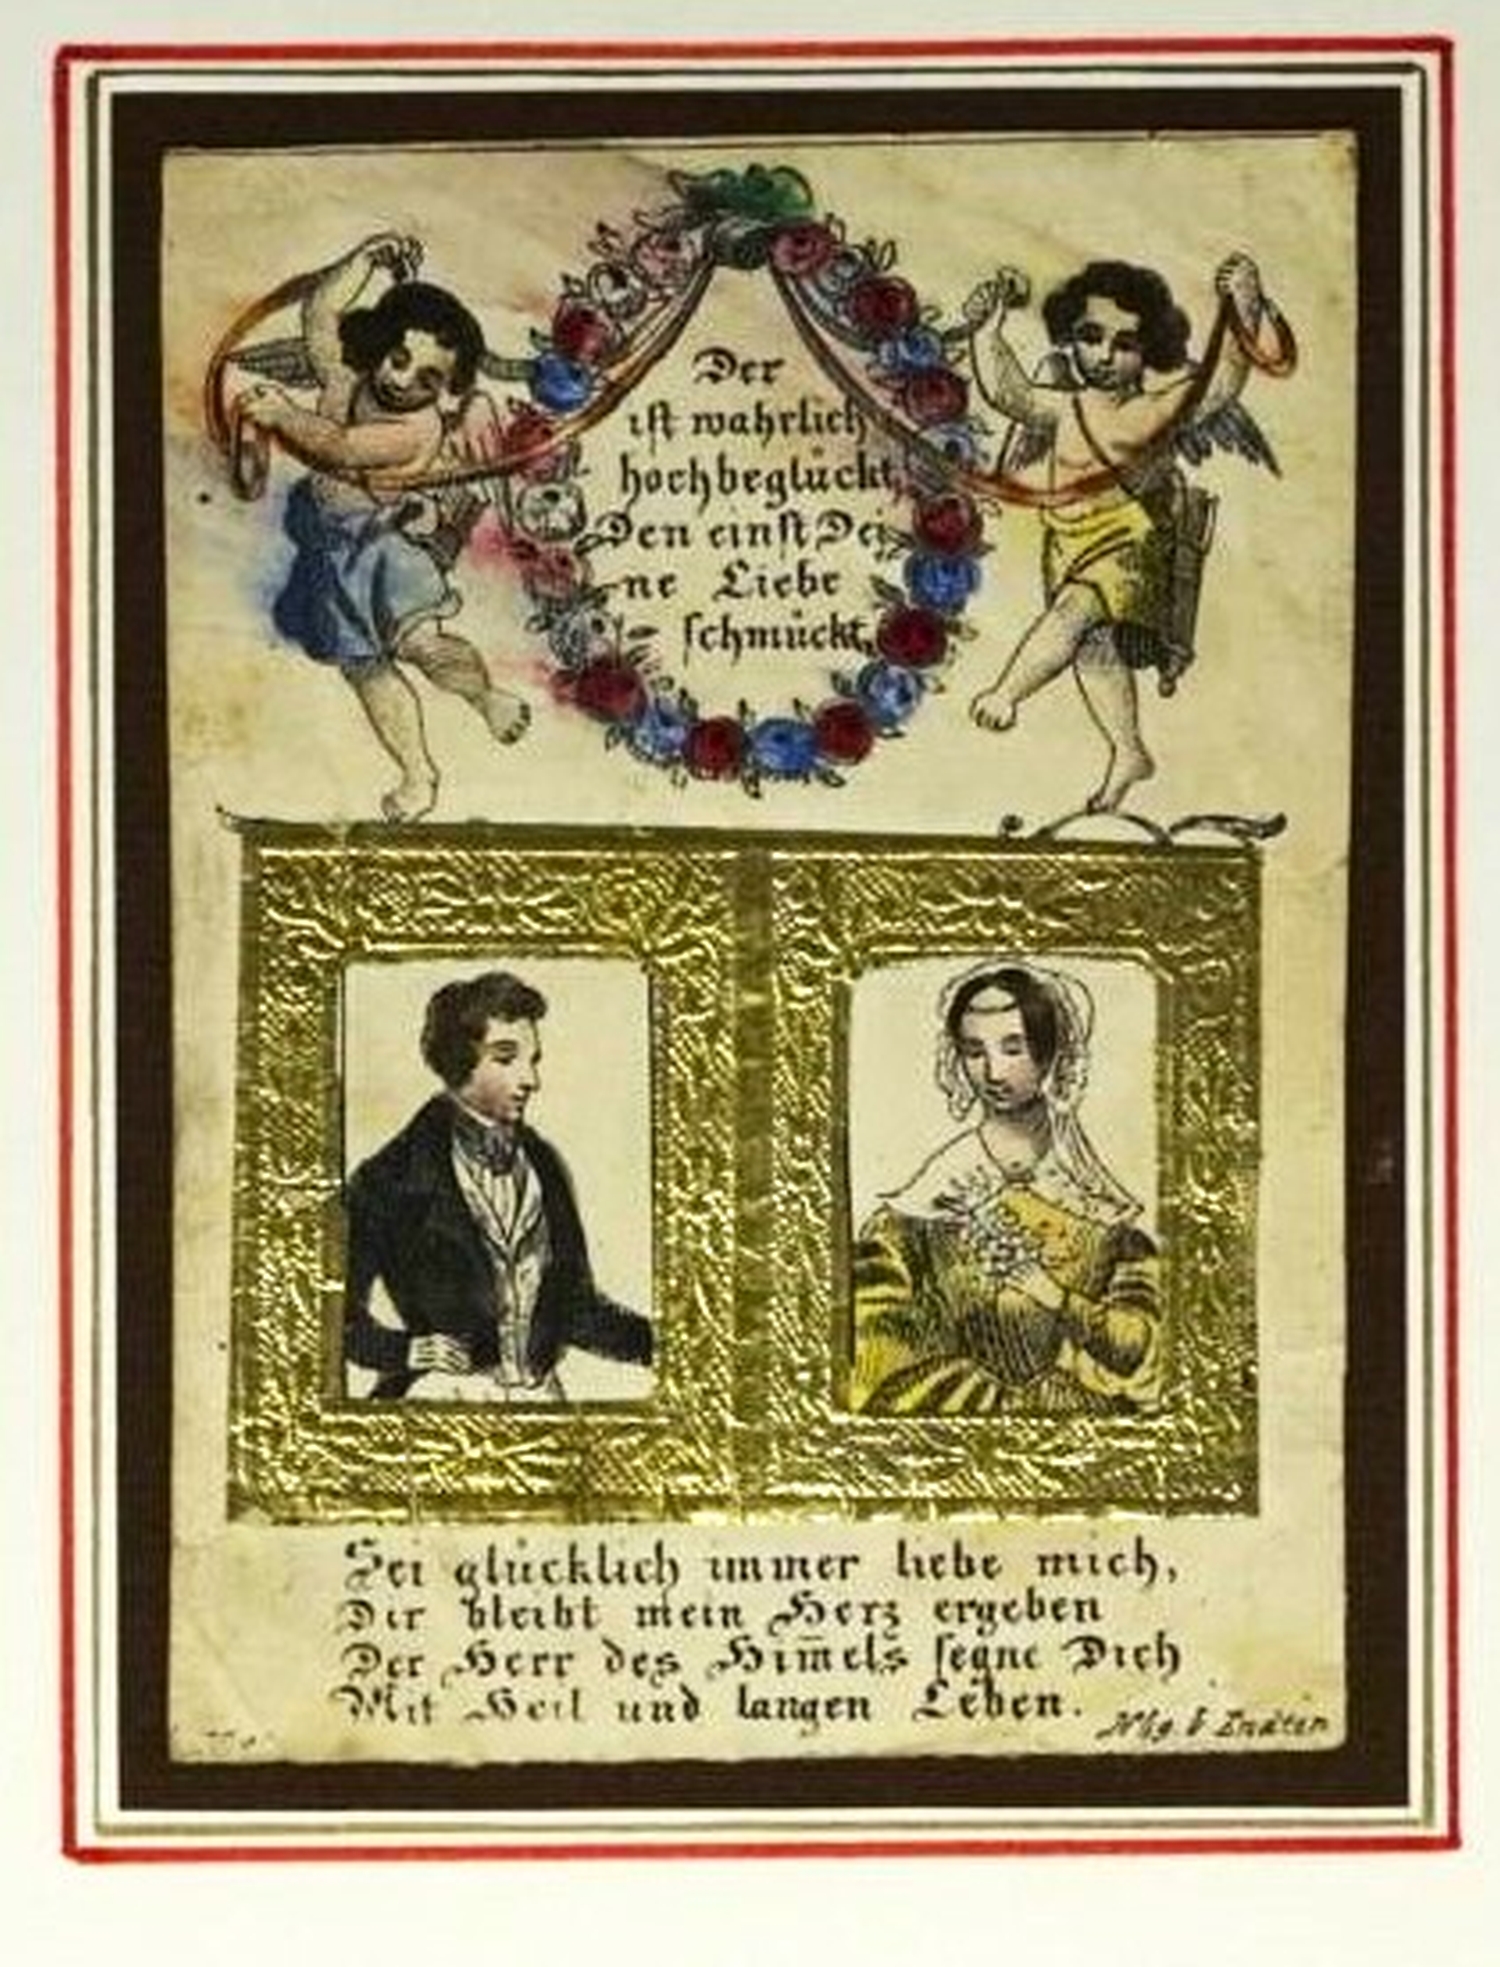 Der
ist wahrlich
hochbeglückt,
Den einst Dei-
ne Liebe
schmückt,
Sei glücklich immer liebe mich,
Dir bleibt mein Herz ergeben
Der Herr des Him̄els segne Dich
Mit Heil und langen Leben.
Nbg. b Endter